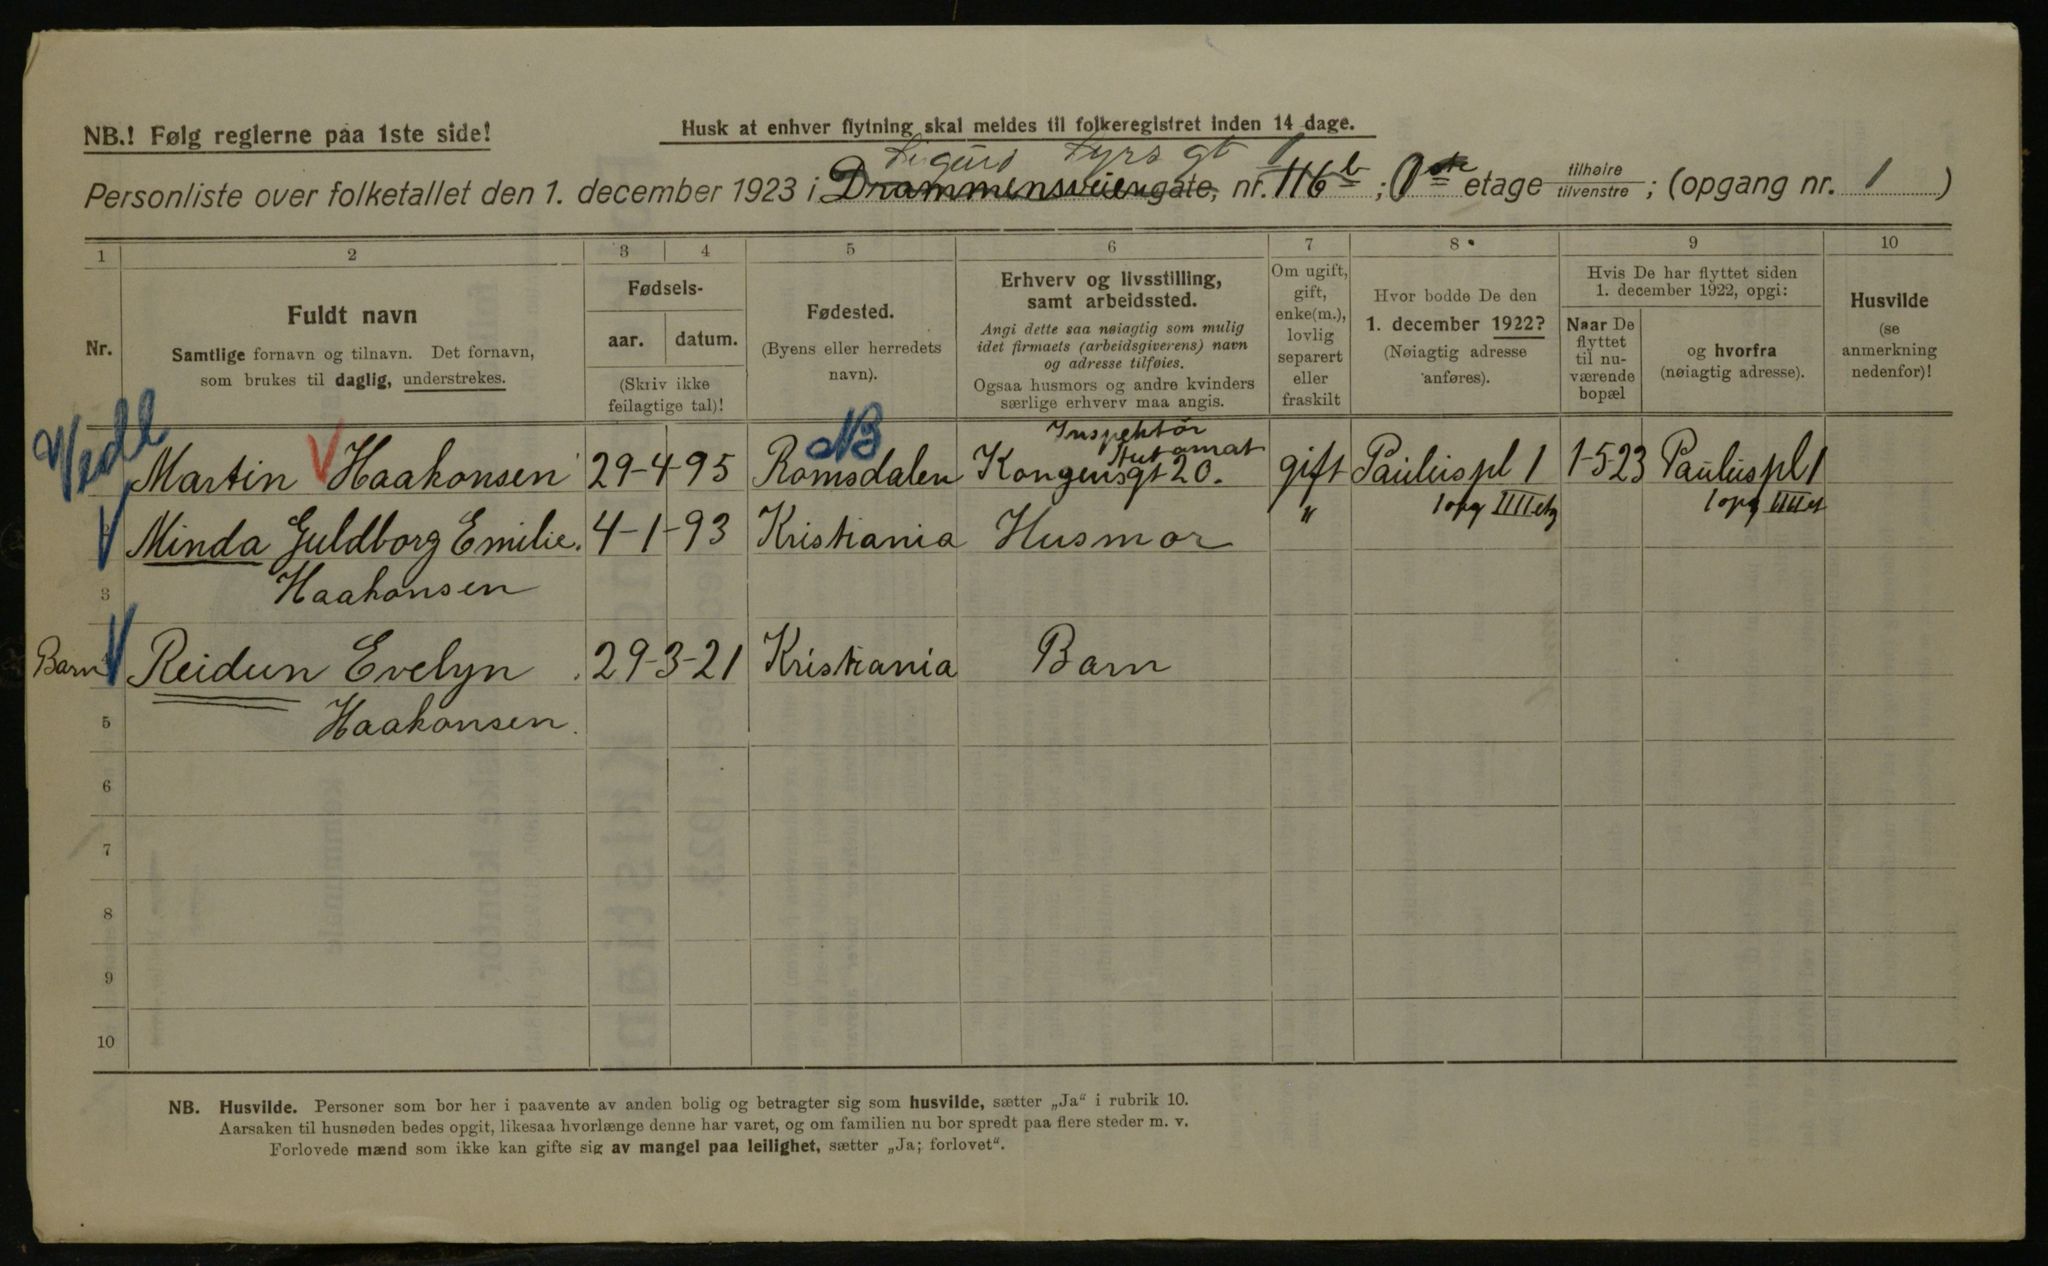 NB.! Følg reglerne paa 1ste side!
Husk at enhver flytning skal meldes til folkeregistret inden 14 dage.
Sigurd Syrs gt 1
Personliste over folketallet den 1. december 1923 i Drammensveien gate, nr. 116b ; 1ste etage tilhøire tilvenstre ; (opgang nr. 1 )
1 2 3 4 5 6 7 8 9 10
Nr.
Fuldt navn
Samtlige fornavn og tilnavn. Det fornavn,
som brukes til daglig, understrekes.
Fødsels-
aar. datum.
(Skriv ikke
feilagtige tal)!
Fødested.
(Byens eller herredets
navn).
Erhverv og livsstilling,
samt arbeidssted.
Angi dette saa nøiagtig som mulig
idet firmaets (arbeidsgiverens) navn
og adresse tilføies.
Ogsaa husmors og andre kvinders
særlige erhverv maa angis.
Om ugift,
gift,
enke(m.),
lovlig
separert
eller
fraskilt
Hvor bodde De den
1. december 1922?
(Nøiagtig adresse
anføres).
Hvis De har flyttet siden
1. december 1922, opgi:
Naar De
flyttet
til nu-
værende
bopæl
og hvorfra
(nøiagtig adresse).
Husvilde
(se
anmerkning
nedenfor)!
Vedl
NB
Inspektør
Automat
Martin Haakonsen 29-4-95 Romsdalen Kongensgt 20. gift Paulus pl 1 1-5-23 Paulus pl 1
1 opg IIII etg 1 opg IIII et
Minda Guldborg Emilie. 4-1-93 Kristiania Husmor "
3 Haakonsen
Barn Reidun Evelyn 29-3-21 Kristiania Barn
5 Haakonsen.
6
7
8
9
10
NB. Husvilde. Personer som bor her i paavente av anden bolig og betragter sig som husvilde, sætter „Ja“ i rubrik 10.
Aarsaken til husnøden bedes opgit, likesaa hvorlænge denne har varet, og om familien nu bor spredt paa flere steder m. v.
Forlovede mænd som ikke kan gifte sig av mangel paa leilighet, sætter „Ja; forlovet“.